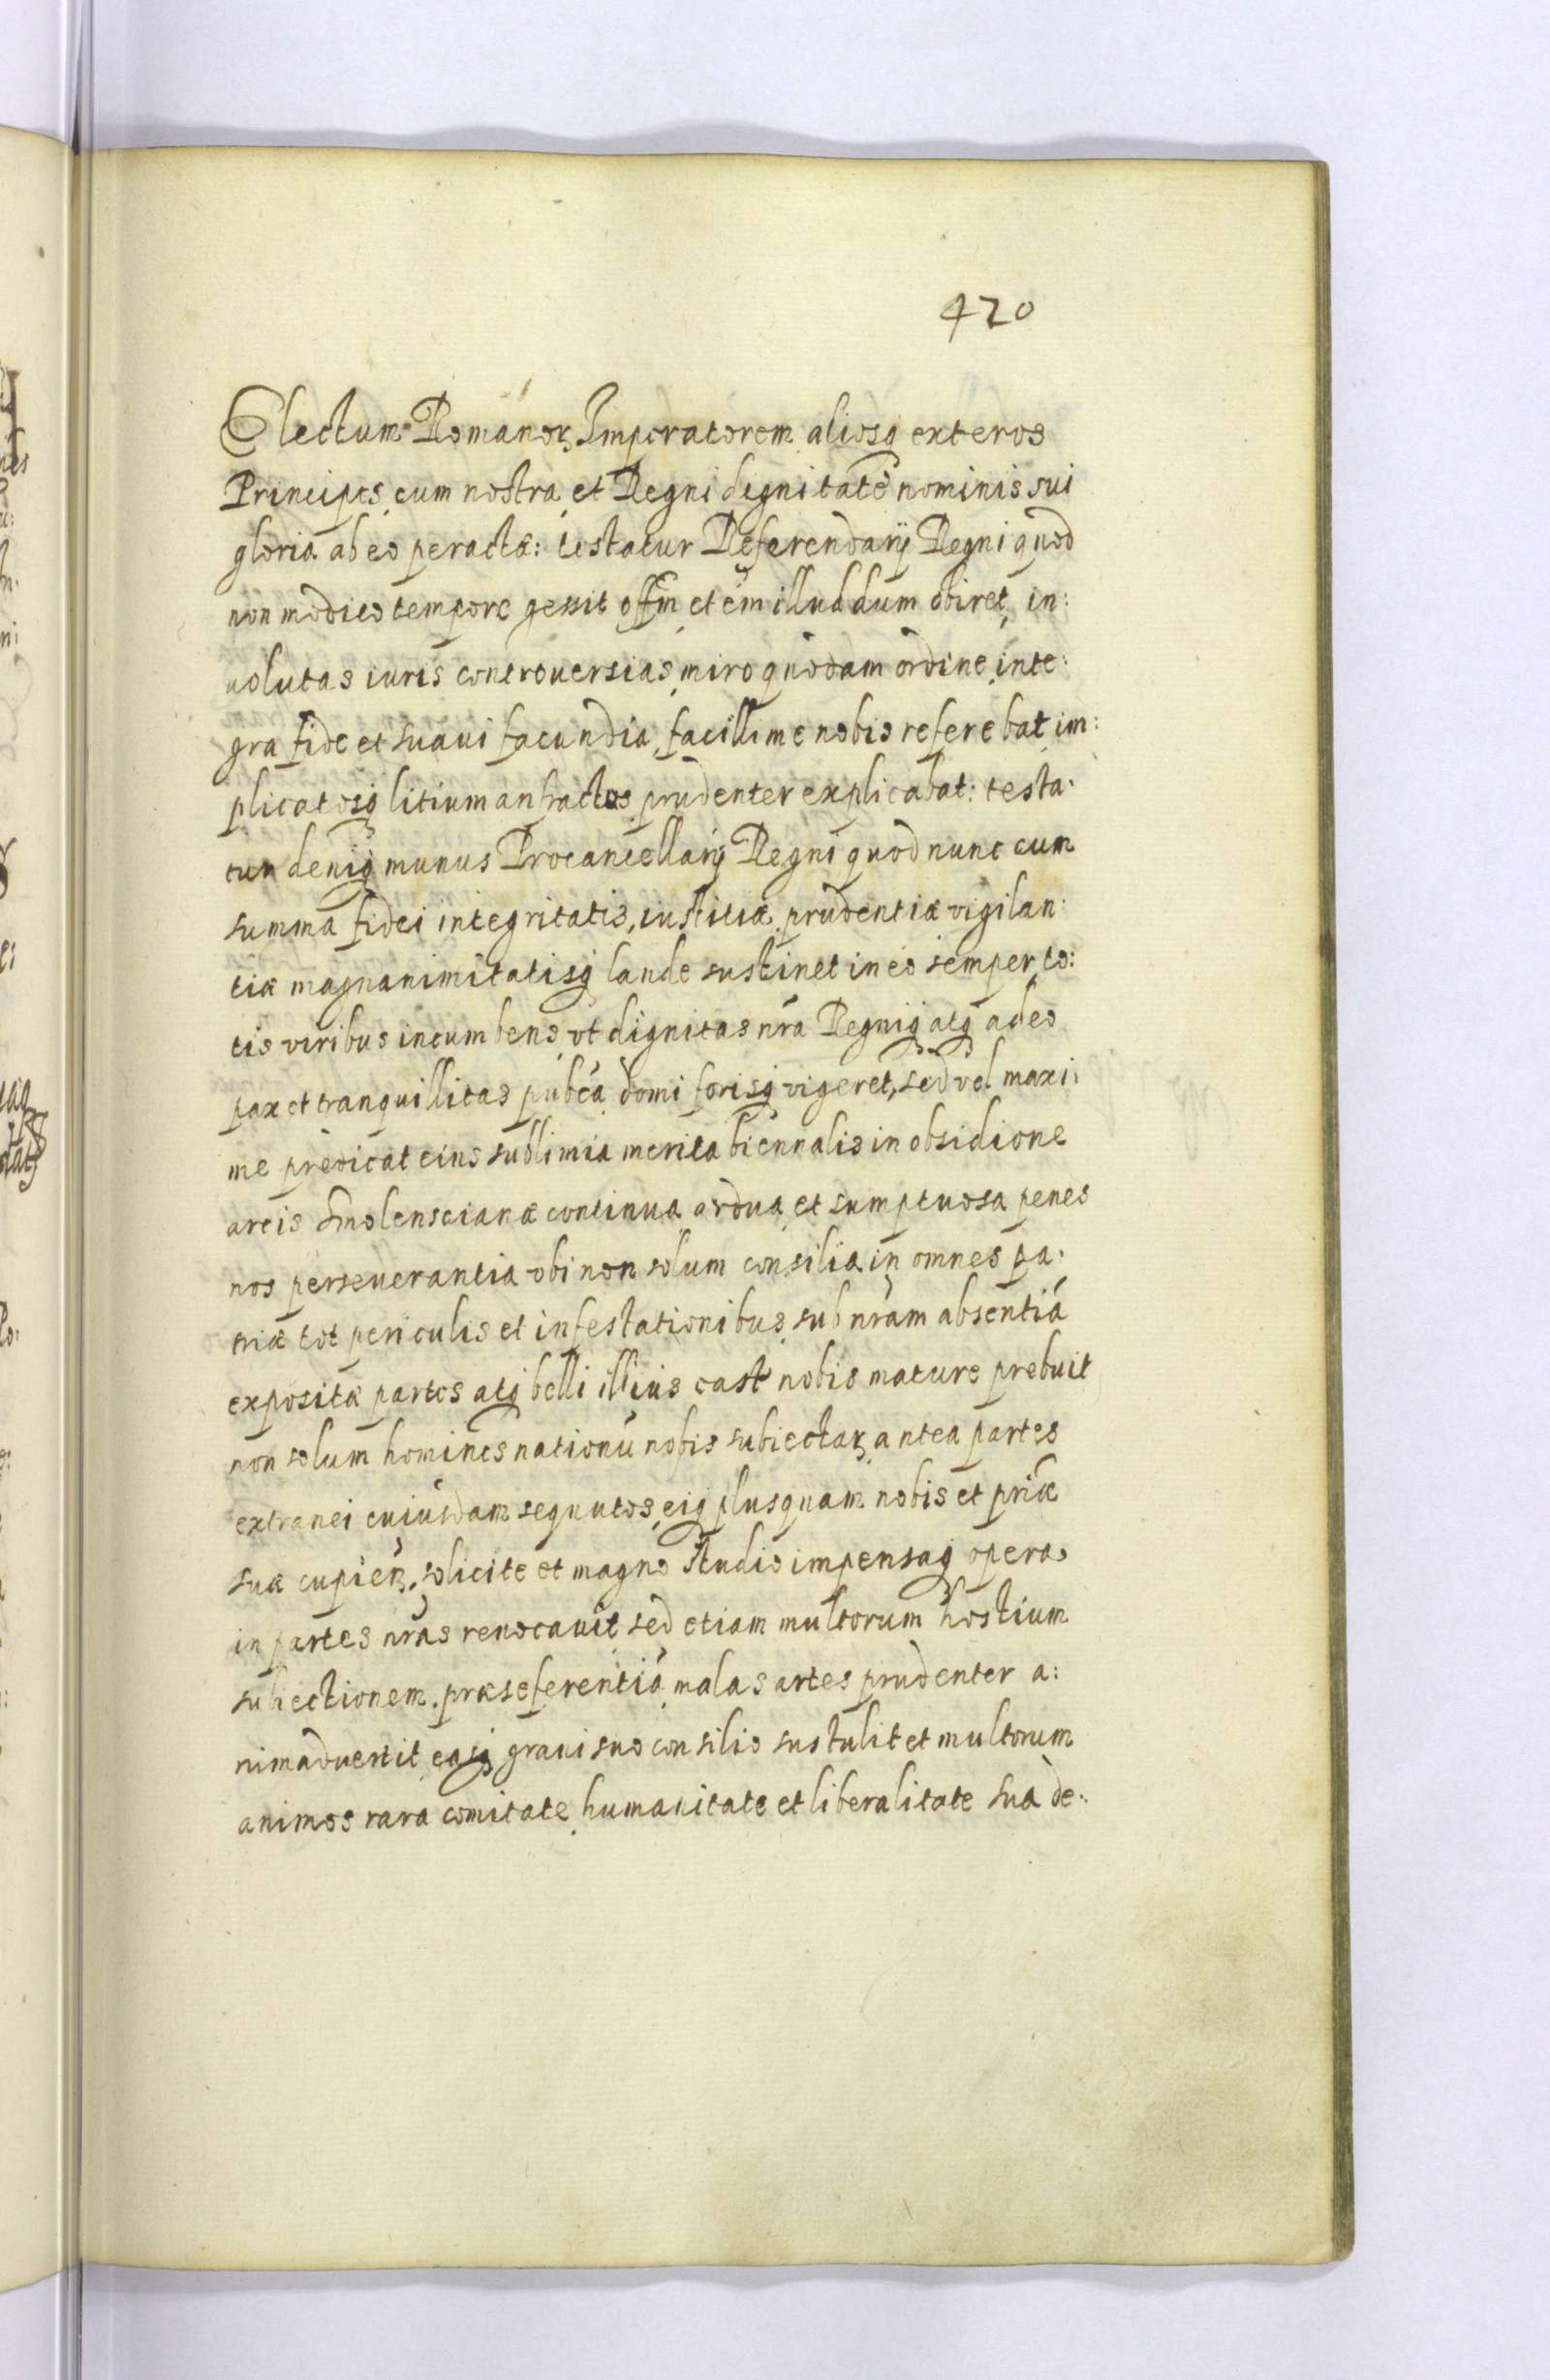 420
Electum Romanorꝝ Imperatorem aliosqꝫ exteros
Principes cum nostra et Regni dignitate nominis sui
gloria ab eo peractæ: testatur Referendarij Regni quod
non modico tempore gessit offm̃ et em̃ illud dum obiret, in:
uolutas iuris controuersias, miro quodam ordine, inte:
gra fide et suaui facundia, facillime nobis referebat, im:
plicatosqꝫ litium anfractus prudenter explicabat: testa:
tur deniqꝫ munus Procancellarij Regni quod nunc cum
summa fidei integritatis, iustitiæ prudentiæ vigilan:
tiæ magnanimitatisqꝫ laude sustinet in eo semper to:
tis viribus incumbens vt dignitas nr̃a Regniqꝫ atqꝫ adeo
pax et tranquillitas pubca domi forisqꝫ vigeret, sed vel maxi:
me predicat eius sublimia merita biennalis in obsidione
arcis Smolenscianæ continua ardua et sumptuosa penes
nos perseuerantia vbi non solum consilia in omnes pa:
triæ tot periculis et infestationibus sub nr̃am absentiã
expositæ partes atqꝫ belli illius cast nobis mature prebuit
non solum homines nationũ nobis subiectarꝝ antea partes
extranei cuiusdam sequutos, eiqꝫ plusquam nobis et pr̃iæ
suæ cupien. solicite et magno studio impensaqꝫ opera
in partes nr̃as reuocauit sed etiam multorum hostium
subiectionem præseferentiã malas artes prudenter a:
nimaduertit easqꝫ graui suo consilio sustulit et multorum
animos rara comitate humanitate et liberalitate sua de: